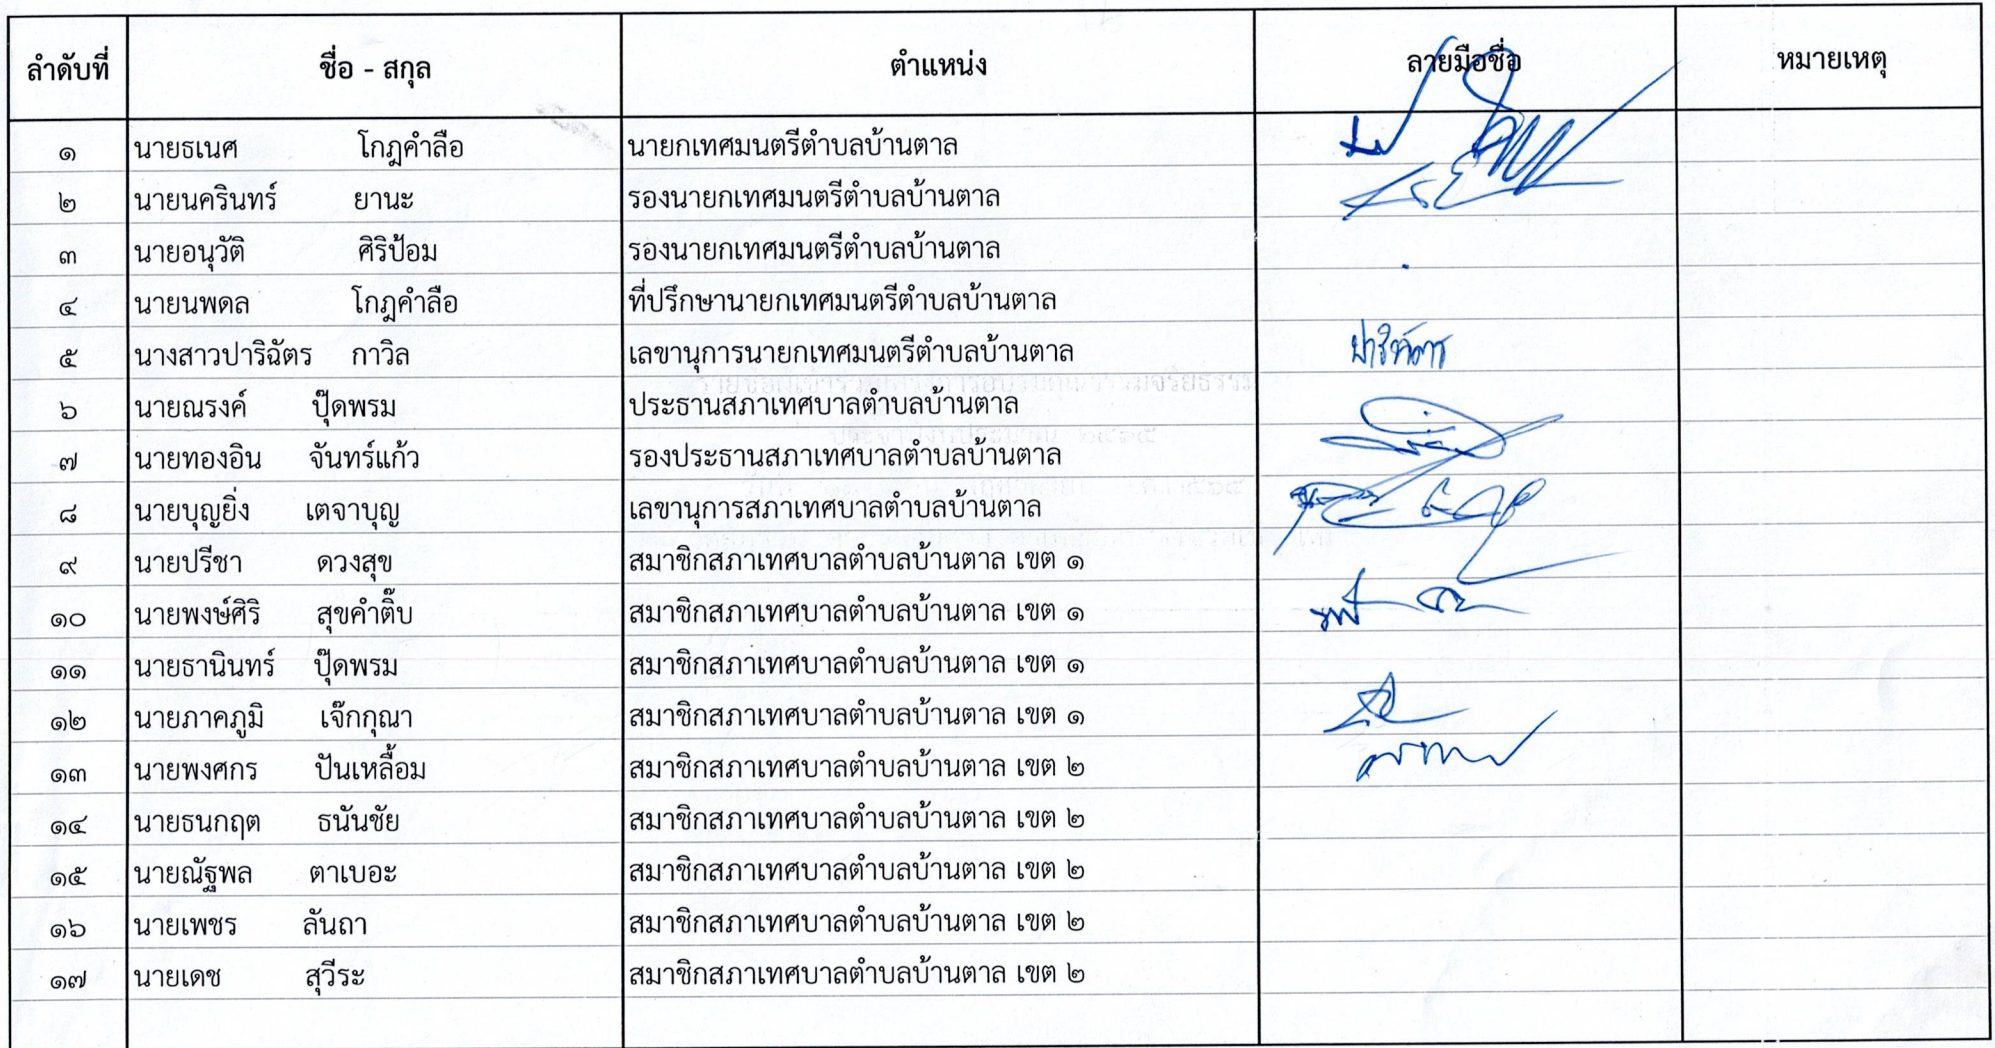 ลำดับที่ ชื่อ - สกุล ตำแหน่ง ลายมือชื่อ หมายเหตุ
๑ นายธเนศ โกฎคำลือ นายกเทศมนตรีตำบลบ้านตาล
๒ นายนครินทร์ ยานะ รองนายกเทศมนตรีตำบลบ้านตาล
๓ นายอนุวัติ ศิริป้อม รองนายกเทศมนตรีตำบลบ้านตาล
๔ นายนพดล โกฎคำลือ ที่ปรึกษานายกเทศมนตรีตำบลบ้านตาล
๕ นางสาวปาริฉัตร กาวิล เลขานุการนายกเทศมนตรีตำบลบ้านตาล
๖ นายณรงค์ ปุ๊ดพรม ประธานสภาเทศบาลตำบลบ้านตาล
๗ นายทองอิน จันทร์แก้ว รองประธานสภาเทศบาลตำบลบ้านตาล
๘ นายบุญยิ่ง เตจาบุญ เลขานุการสภาเทศบาลตำบลบ้านตาล
๙ นายปรีชา ดวงสุข สมาชิกสภาเทศบาลตำบลบ้านตาล เขต ๑
๑๐ นายพงษ์ศิริ สุขคำติ๊บ สมาชิกสภาเทศบาลตำบลบ้านตาล เขต ๑
๑๑ นายธานินทร์ ปุ๊ดพรม สมาชิกสภาเทศบาลตำบลบ้านตาล เขต ๑
๑๒ นายภาคภูมิ เจ๊กกุณา สมาชิกสภาเทศบาลตำบลบ้านตาล เขต ๑
๑๓ นายพงศกร ปันเหลื้อม สมาชิกสภาเทศบาลตำบลบ้านตาล เขต ๒
๑๔ นายธนกฤต ธนันชัย สมาชิกสภาเทศบาลตำบลบ้านตาล เขต ๒
๑๕ นายณัฐพล ตาเบอะ สมาชิกสภาเทศบาลตำบลบ้านตาล เขต ๒
๑๖ นายเพชร ลันถา สมาชิกสภาเทศบาลตำบลบ้านตาล เขต ๒
๑๗ นายเดช สุวีระ สมาชิกสภาเทศบาลตำบลบ้านตาล เขต ๒